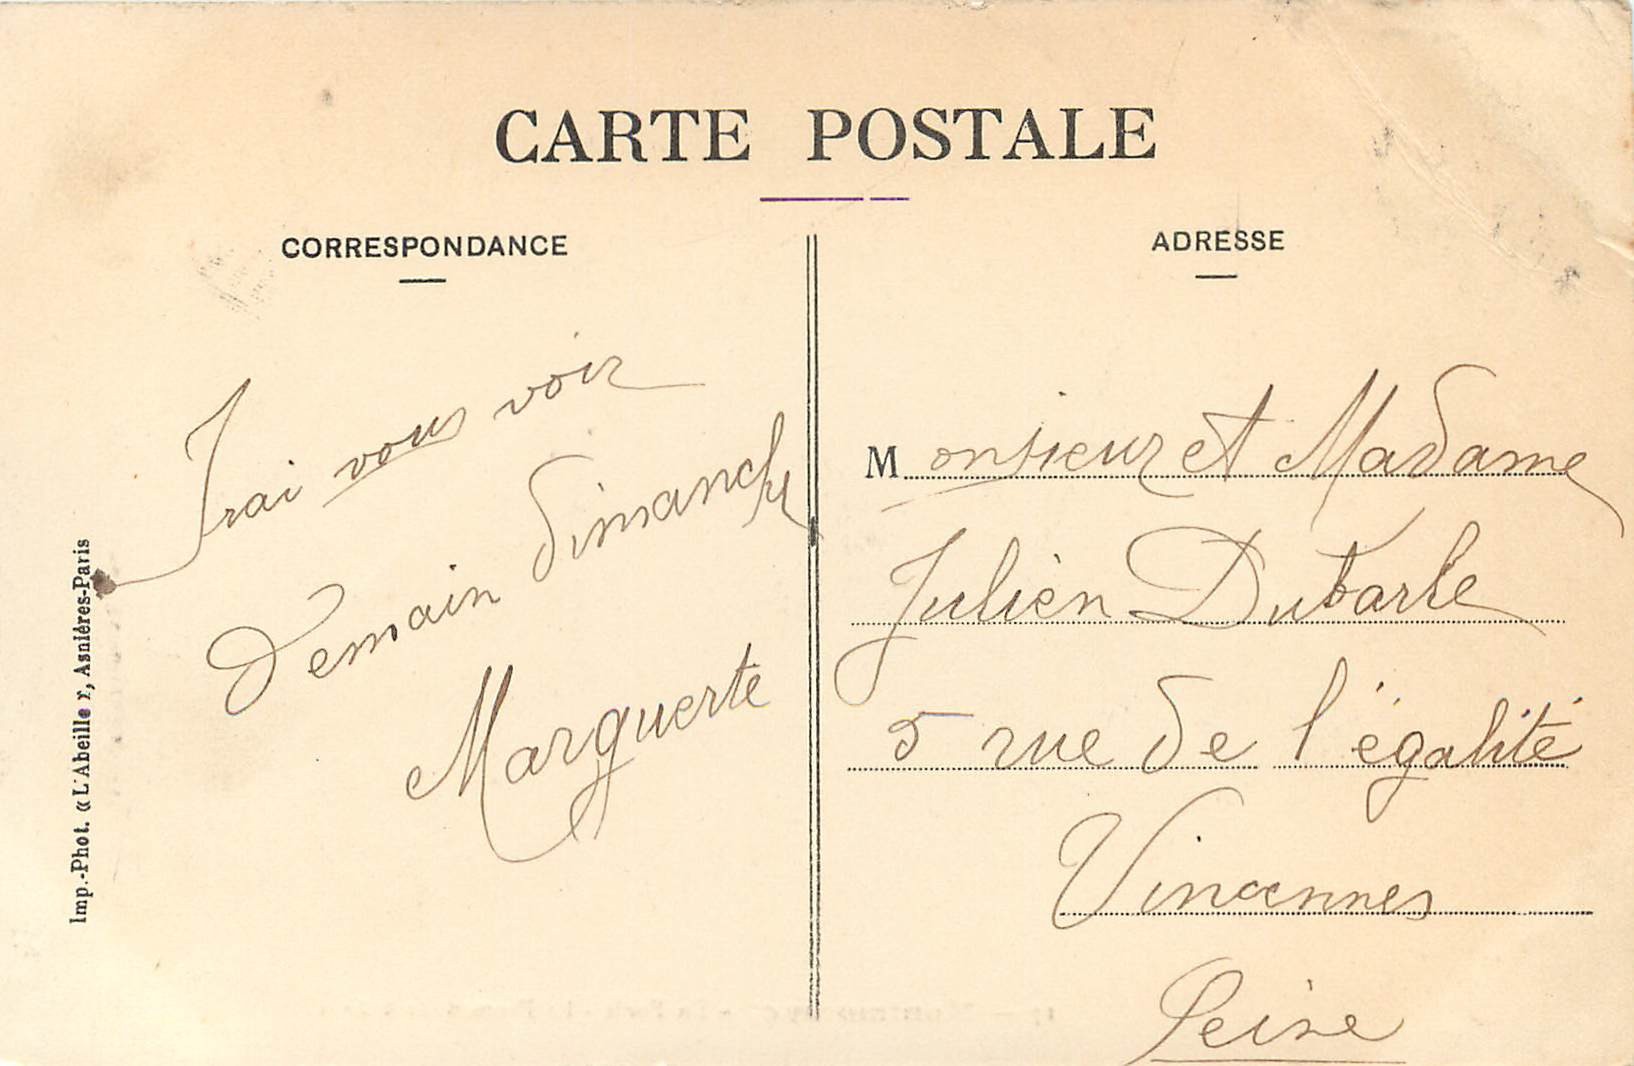 CARTE POSTALE
CORRESPONDANCE
ADRESSE
Irai vous voir
demain dimanche
Marguerte
Monsieur et Madame
Julien Dubarle
5 rue de l'égalité
Vincennes
Seine
Imp.-Phot. « L'Abeille », Asnières-Paris